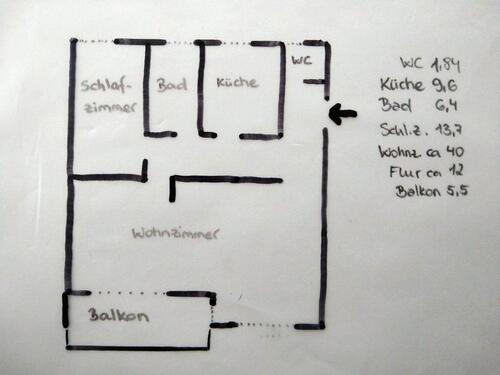 WC
Schlaf-
zimmer
Bad
Küche
Wohnzimmer
Balkon
WC 1,84
Küche 9,6
Bad 6,4
Schl.z. 13,7
Wohnz ca 40
Flur ca 12
Balkon 5,5